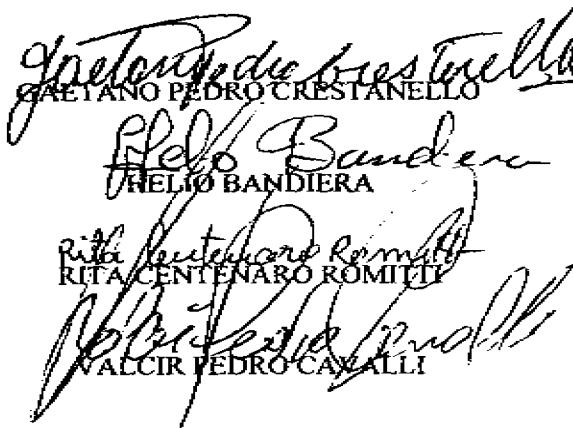 Gaetano Pedro Crestanello
GAETANO PEDRO CRESTANELLO
Helio Bandiera
HELIO BANDIERA
Rita Centenaro Romitti
RITA CENTENARO ROMITTI
VALCIR PEDRO CAVALLI